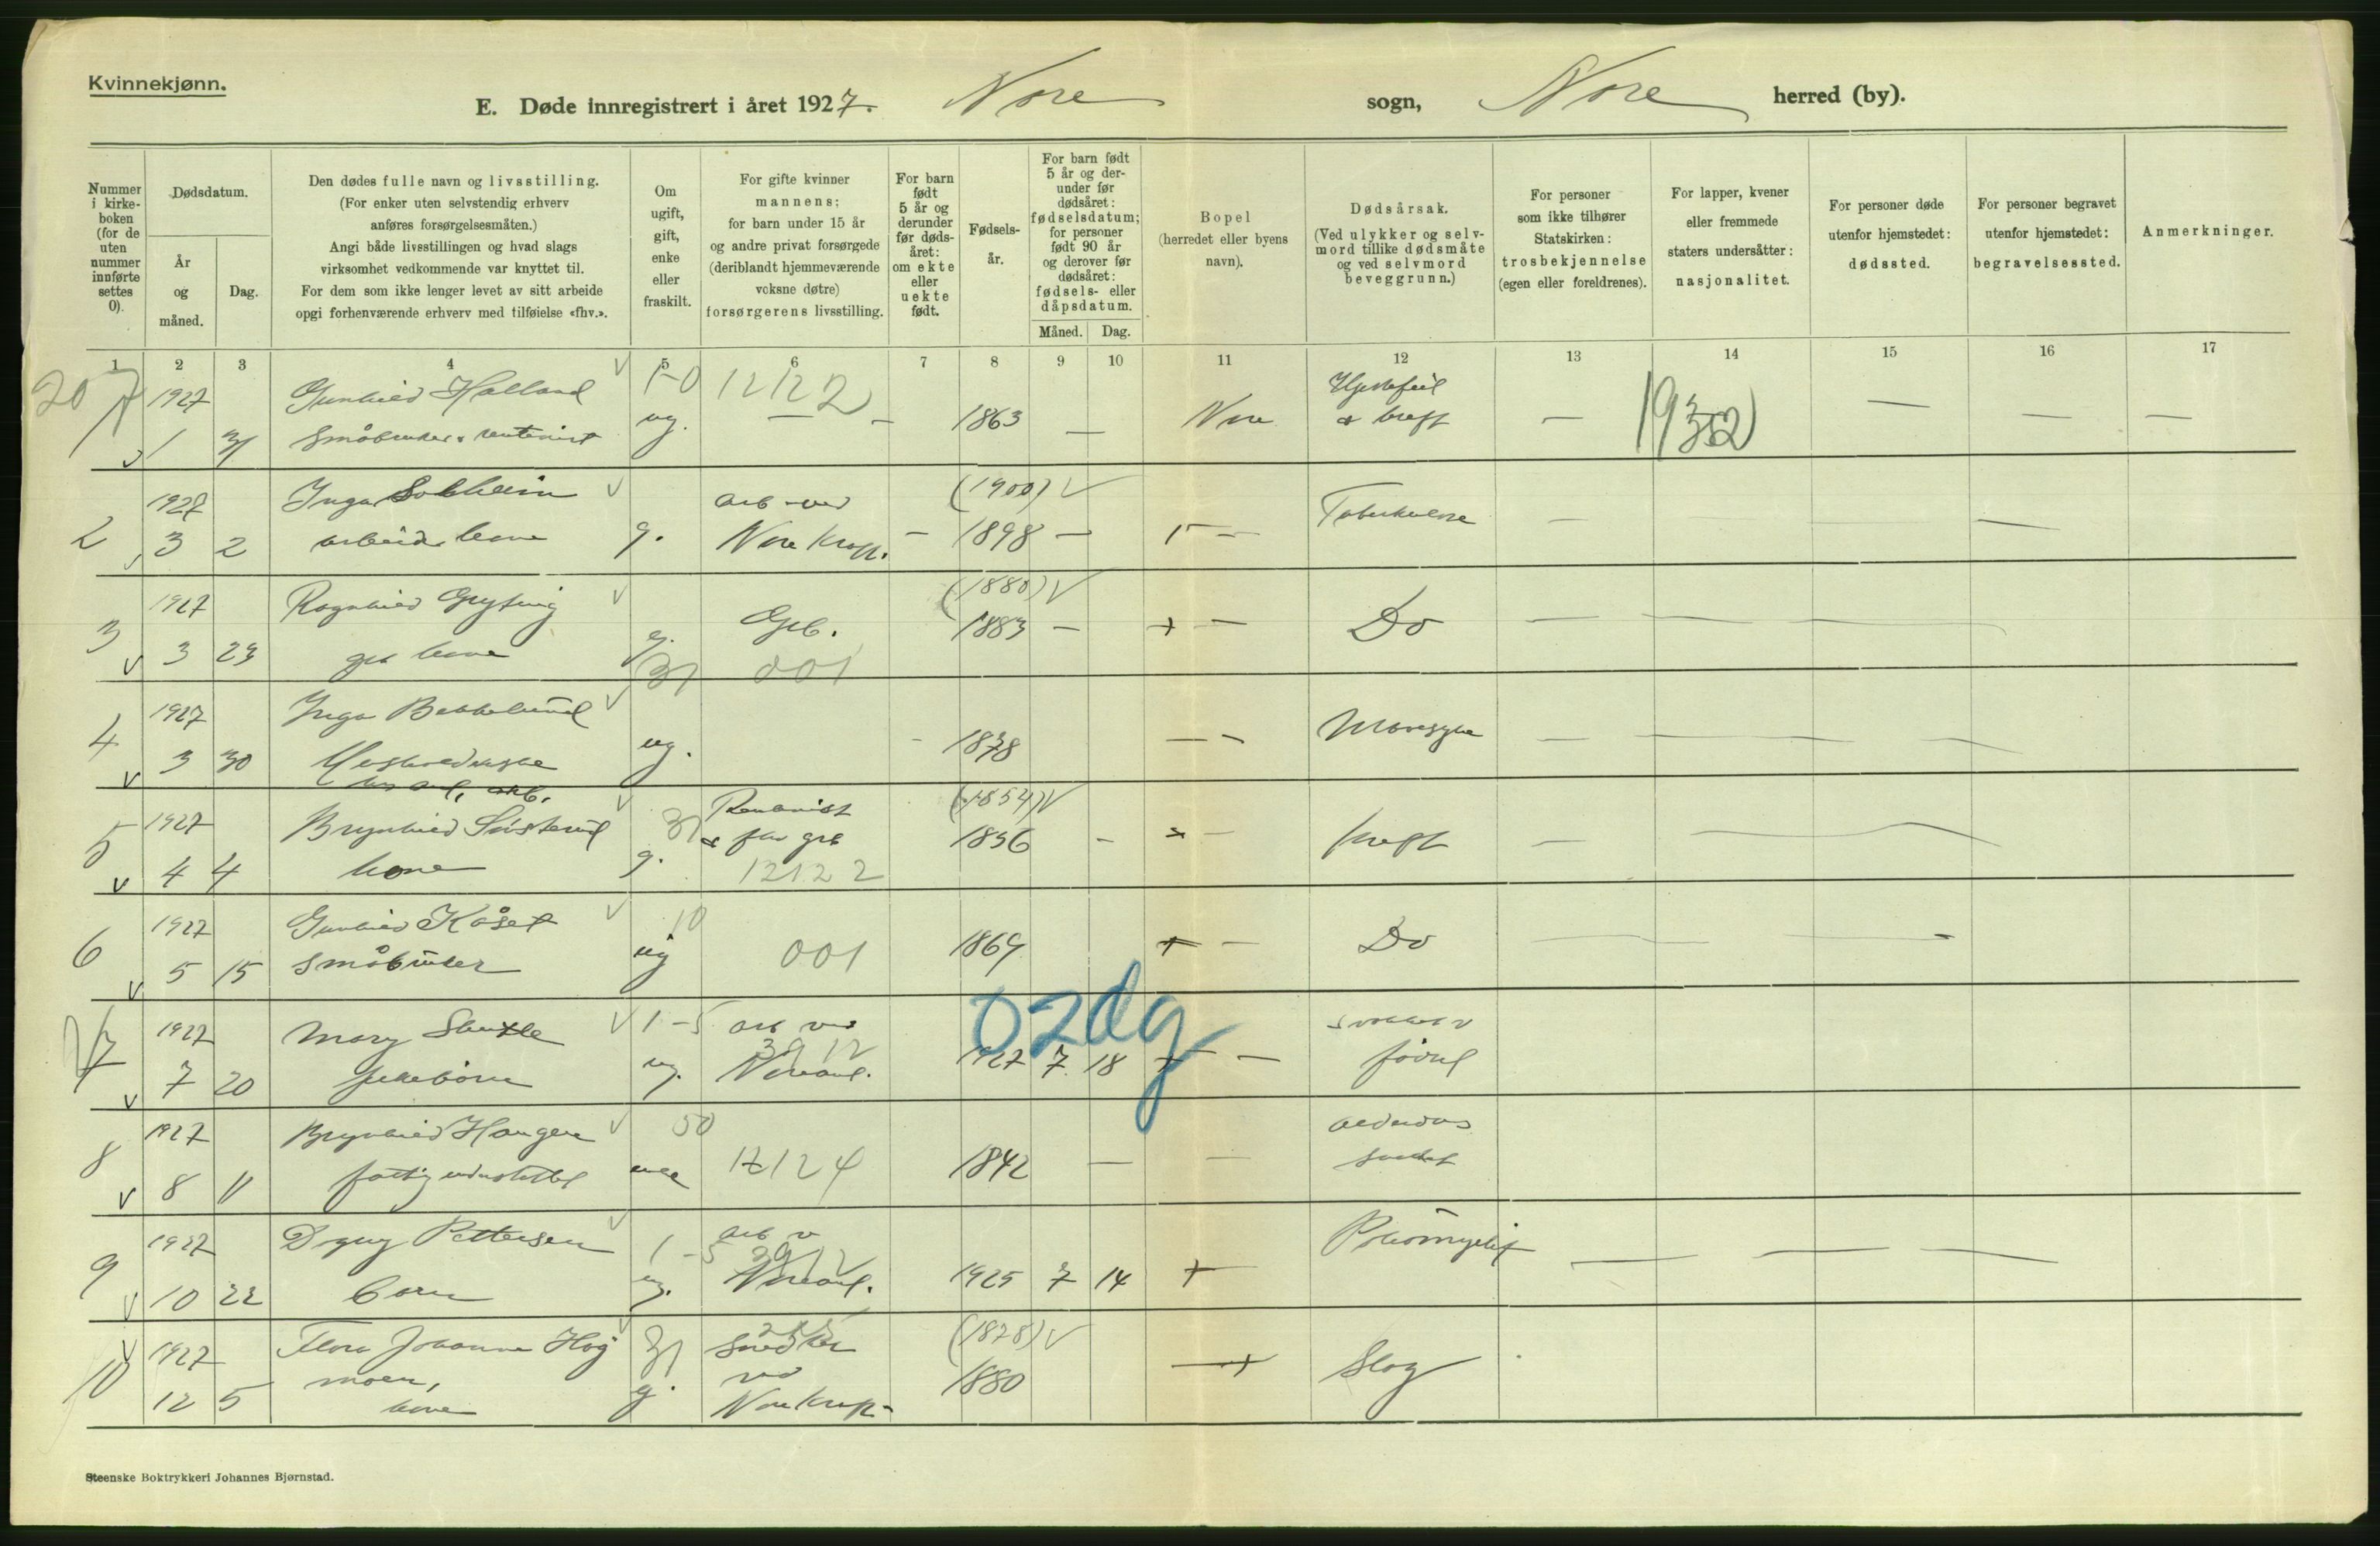 Kvinnekjønn.
E. Døde innregistrert i året 1927. Nore sogn, Nore herred (by).
Nummer i kirkeboken (for de uten nummer innførte settes 0).
Dødsdatum.
År og måned.
Dag.
Den dødes fulle navn og livsstilling.
(For enker uten selvstendig erhverv
anføres forsørgelsesmåten.)
Angi både livsstillingen og hvad slags
virksomhet vedkommende var knyttet til.
For dem som ikke lenger levet av sitt arbeide
opgi forhenværende erhverv med tilføielse «fhv.».
Om ugift, gift, enke eller fraskilt.
For gifte kvinner
mannens;
for barn under 15 år
og andre privat forsørgede
(deriblandt hjemmeværende
voksne døtre)
forsørgerens livsstilling.
For barn født 5 år og derunder før dødsåret: om ekte eller uekte født.
Fødselsår.
For barn født 5 år og derunder før dødsåret: fødselsdatum; for personer født 90 år og derover før dødsåret: fødsels- eller dåpsdatum.
Måned. Dag.
Bopel
(herredet eller byens
navn).
Dødsårsak.
(Ved ulykker og selvmord tillike dødsmåte og ved selvmord beveggrunn.)
For personer
som ikke tilhører
Statskirken:
trosbekjennelse
(egen eller foreldrenes).
For lapper, kvener
eller fremmede
staters undersåtter:
nasjonalitet.
For personer døde
utenfor hjemstedet:
dødssted.
For personer begravet
utenfor hjemstedet:
begravelsessted.
Anmerkninger.
1 2 3 4 5 6 7 8 9 10 11 12 13 14 15 16 17
20 1927 Gunhild Halland 1-0 12122
1 31 ug. — - 1863 — Nore & kreft — — — —
1927 Inga arb. ved (1900) Tuberkulose
2 3 2 arbeider kone g. Nore kraft. - 1898 — —
1927 Ragnhild (1880)
3 3 23 gbr kone g. Grb. 1883 — + — Do
31 001
1927 Inga
4 3 30 ug. - 1878 — -
1927 Brynhild 31 Rentenist (1854)
5 4 4 kone g. & fhv grb 1856 - kreft
12122
1927 Gunhild Kåset 10
6 5 15 småbruker ug 001 1869 + — Do
1927 Mary 1-5 arb ved 02dg
7 7 20 ug. 3912 Noreanl. 1927 7 18 + — fødsel
1927 Brynhild Haugen 50
8 8 11 12124 1842 — —
1927 Dagny Pettersen 1-5 arb v 3912
9 10 22 barn ug. Noreanl. 1925 7 14 +
1927 Johanne 31 snedker (1878)
10 12 5 moen, g. ved 1880 Slag
kone Nore kraft
Steenske Boktrykkeri Johannes Bjørnstad.